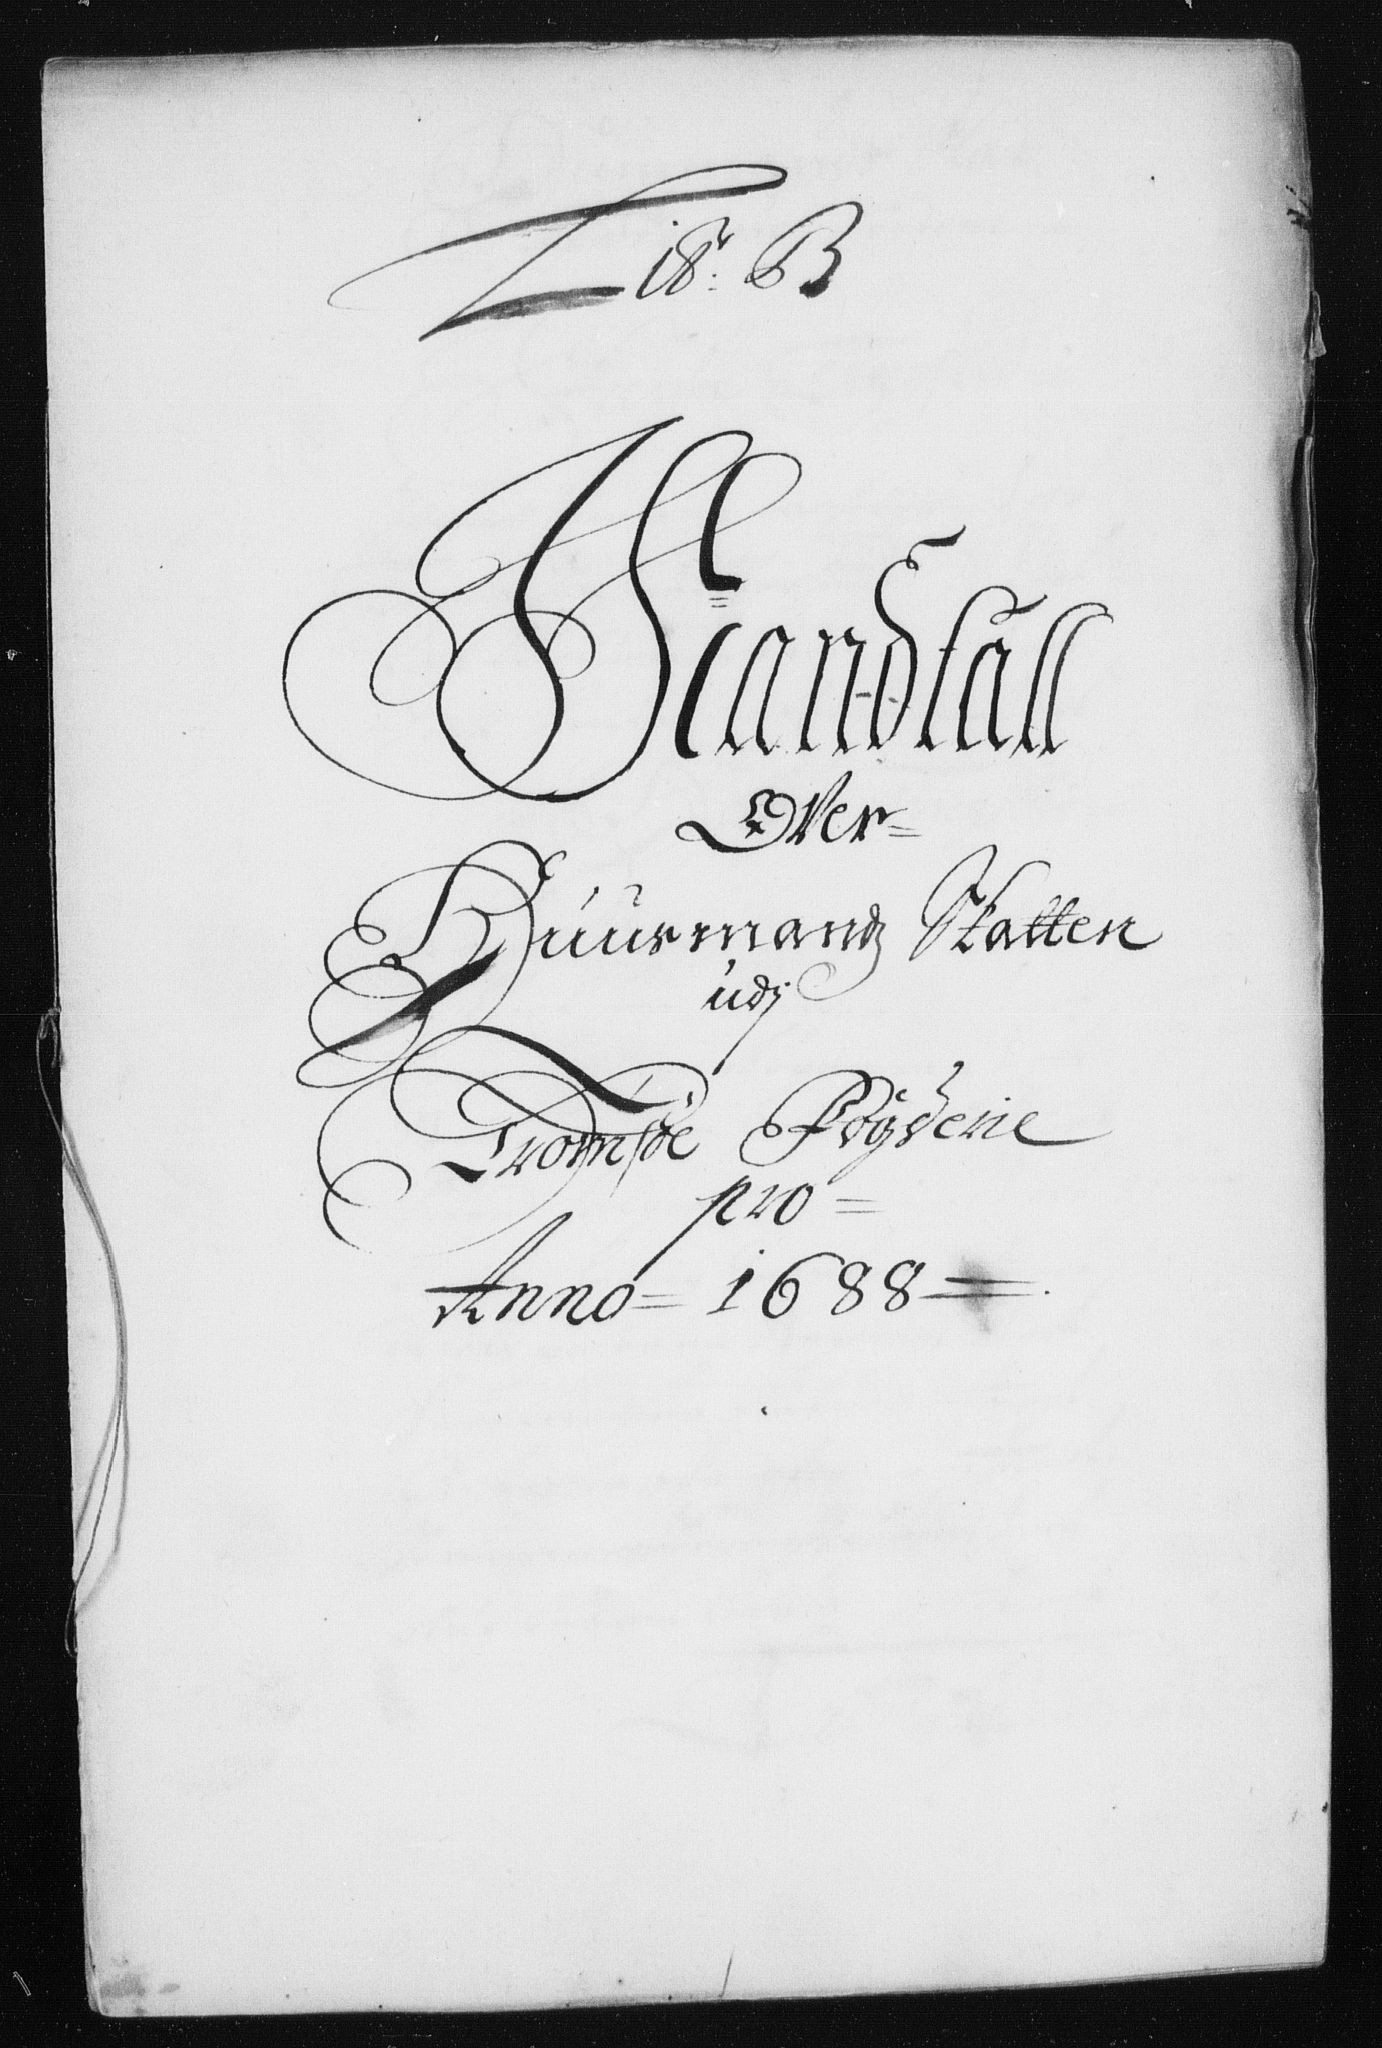 Lit: B
Mandtall
Over
Huusmandz Skatten
udj
Tromsøe Fogderie
pro
Anno 1688